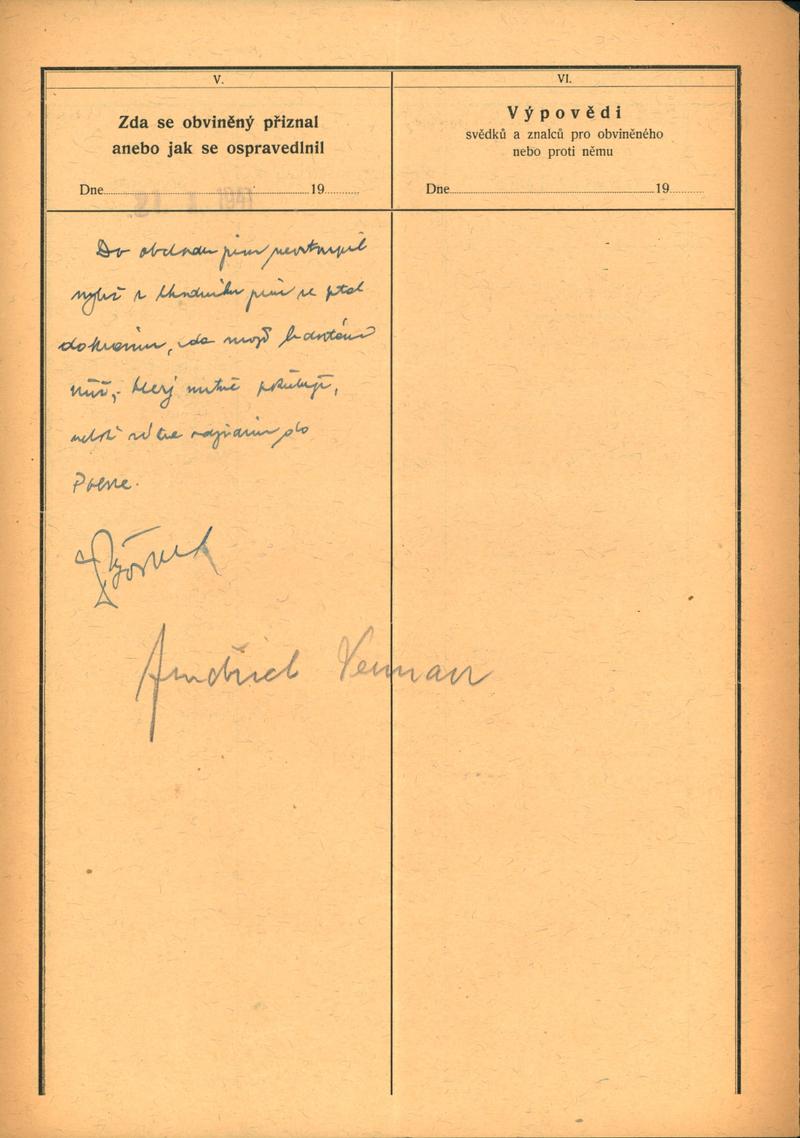 V.
Zda se obviněný přiznal
anebo jak se ospravedlnil
Dne 19
21 X 1941
VI.
Výpovědi
svědků a znalců pro obviněného
nebo proti němu
Dne 19
Do obchodu jsem nevstoupil
nýbrž z chodníku jsem se ptal
zda mojí
nůž, který nutně potřebuji,
neboť odjíždím do
Polné.
Jindřich